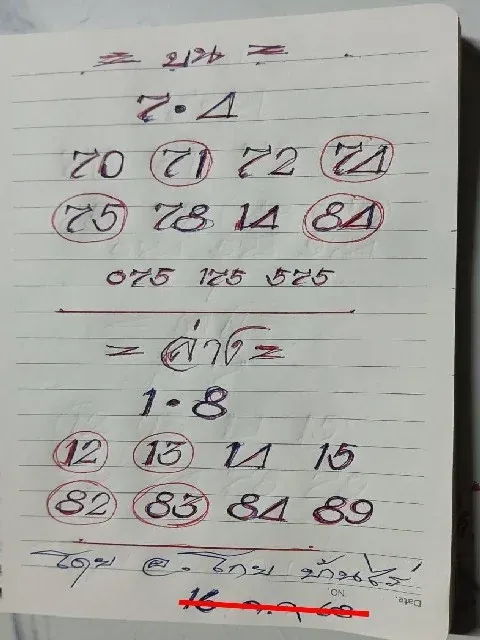 = บน =
7 • 4
70 71 72 74
75 78 14 84
075 175 575
= ล่าง =
1 • 8
12 13 14 15
82 83 84 89
โดย อ. ไกย บ้านไร่
NO
Date.
16